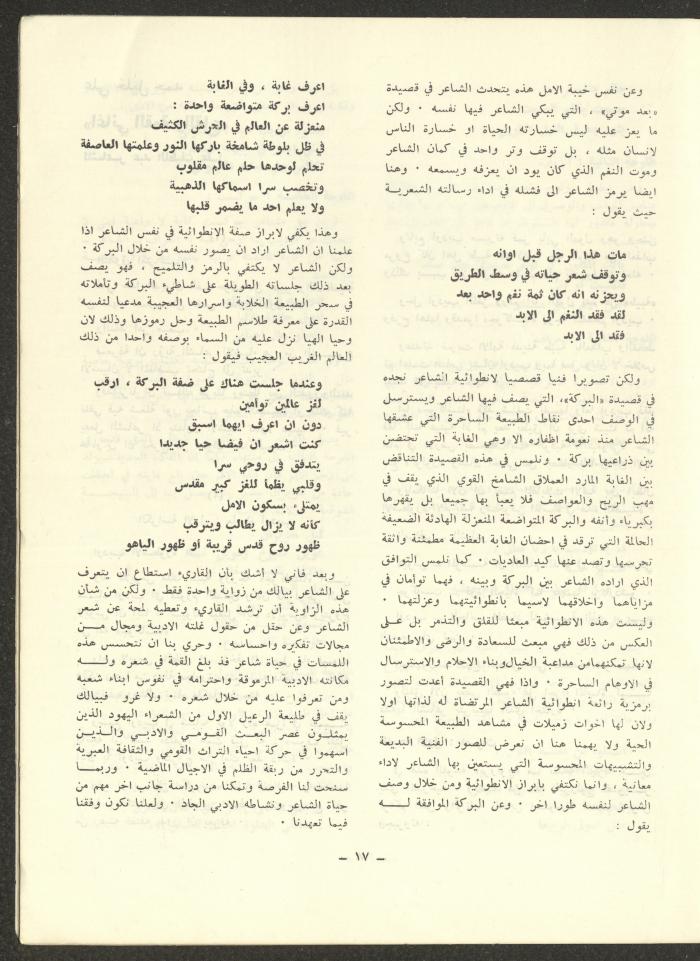 وعن نفس خيبة الامل هذه يتحدث الشاعر في قصيدة
«بعد موتي» ، التي يبكي الشاعر فيها نفسه ٠ ولكن
ما يعز عليه ليس خسارته الحياة او خسارة الناس
لانسان مثله ، بل توقف وتر واحد في كمان الشاعر
وموت النغم الذي كان يود ان يعزفه ويسمعه ٠ وهنا
ايضا يرمز الشاعر الى فشله في اداء رسالته الشعرية
حيث يقول :
مات هذا الرجل قبل اوانه
وتوقف شعر حياته في وسط الطريق
ويحزنه انه كان ثمة نغم واحد بعد
لقد فقد النغم الى الابد
فقد الى الابد
ولكن تصويرا فنيا قصصيا لانطوائية الشاعر نجده
في قصيدة «البركة»، التي يصف فيها الشاعر ويسترسل
في الوصف احدى نقاط الطبيعة الساحرة التي عشقها
الشاعر منذ نعومة اظفاره الا وهي الغابة التي تحتضن
بين ذراعيها بركة ٠ ونلمس في هذه القصيدة التناقض
بين الغابة المارد العملاق الشامخ القوي الذي يقف في
مهب الريح والعواصف فلا يعبأ بها جميعا بل يقهرها
بكبرياء وأنفه والبركة المتواضعة المنعزلة الهادئة الضعيفة
الحالمة التي ترقد في احضان الغابة العظيمة مطمئنة واثقة
تحرسها وتصد عنها كيد العاديات ٠ كما نلمس التوافق
الذي اراده الشاعر بين البركة وبينه ، فهما توأمان في
مزاياهما واخلاقهما لاسيما بانطوائيتهما وعزلتهما ٠
وليست هذه الانطوائية مبعثا للقلق والتذمر بل على
العكس من ذلك فهي مبعث للسعادة والرضى والاطمئنان
لانها تمكنهمامن مداعبة الخيال وبناء الاحلام والاسترسال
في الاوهام الساحرة ٠ واذا فهي القصيدة أعدت لتصور
برمزية رائعة انطوائية الشاعر المرتضاة له لذاتها اولا
ولان لها اخوات زميلات في مشاهد الطبيعة المحسوسة
الحية ولا يهمنا هنا ان نعرض للصور الفنية البديعة
والتشبيهات المحسوسة التي يستعين بها الشاعر لاداء
معانية ، وانما نكتفي بابراز الانطوائية ومن خلال وصف
الشاعر لنفسه طورا اخر ٠ وعن البركة الموافقة لـه
يقول :
اعرف غابة ، وفي الغابة
اعرف بركة متواضعة واحدة :
منعزلة عن العالم في الحرش الكثيف
في ظل بلوطة شامخة باركها النور وعلمتها العاصفة
تحلم لوحدها حلم عالم مقلوب
وتخصب سرا اسماكها الذهبية
ولا يعلم احد ما يضمر قلبها
وهذا يكفي لابراز صفة الانطوائية في نفس الشاعر اذا
علمنا ان الشاعر اراد ان يصور نفسه من خلال البركة ٠
ولكن الشاعر لا يكتفي بالرمز والتلميح ، فهو يصف
بعد ذلك جلساته الطويلة على شاطيء البركة وتأملاته
في سحر الطبيعة الخلابة واسرارها العجيبة مدعيا لنفسه
القدرة على معرفة طلاسم الطبيعة وحل رموزها وذلك لان
وحيا الهيا نزل عليه من السماء بوصفه واحدا من ذلك
العالم الغريب العجيب فيقول :
وعندما جلست هناك على ضفة البركة ، ارقب
لغز عالمين توأمين
دون ان اعرف ايهما اسبق
كنت اشعر ان فيضا حيا جديدا
يتدفق في روحي سرا
وقلبي يظمأ للغز كبير مقدس
يمتلىء بسكون الامل
كأنه لا يزال يطالب ويترقب
ظهور روح قدس قريبة أو ظهور الياهو
وبعد فاني لا أشك بأن القاريء استطاع ان يتعرف
على الشاعر بيالك من زواية واحدة فقط ٠ ولكن من شأن
هذه الزاوية أن ترشد القاريء وتعطيه لمحة عن شعر
الشاعر وعن حقل من حقول غلته الادبية ومجال مـن
مجالات تفكيره واحساسه ٠ وحري بنا ان نتحسس هذه
اللمسات في حياة شاعر فذ بلغ القمة في شعره ولـه
مكانته الادبية المرموقة واحترامه في نفوس ابناء شعبه
ومن تعرفوا عليه من خلال شعره ٠ ولا غرو فبيالك
يقف في طليعة الرعيل الاول من الشعراء اليهود الذين
يمثلـون عصر البعـث القـومـي والادبـي والـذيـن
اسهموا في حركة احياء التراث القومي والثقافة العبرية
والتحرر من ربقة الظلم في الاجيال الماضية ٠ وربمـا
سنحت لنا الفرصة وتمكنا من دراسة جانب اخر مهم من
حياة الشاعر ونشاطه الادبي الجاد ٠ ولعلنا نكون وفقنا
فيما تعهدنا ٠
– ١٧ –